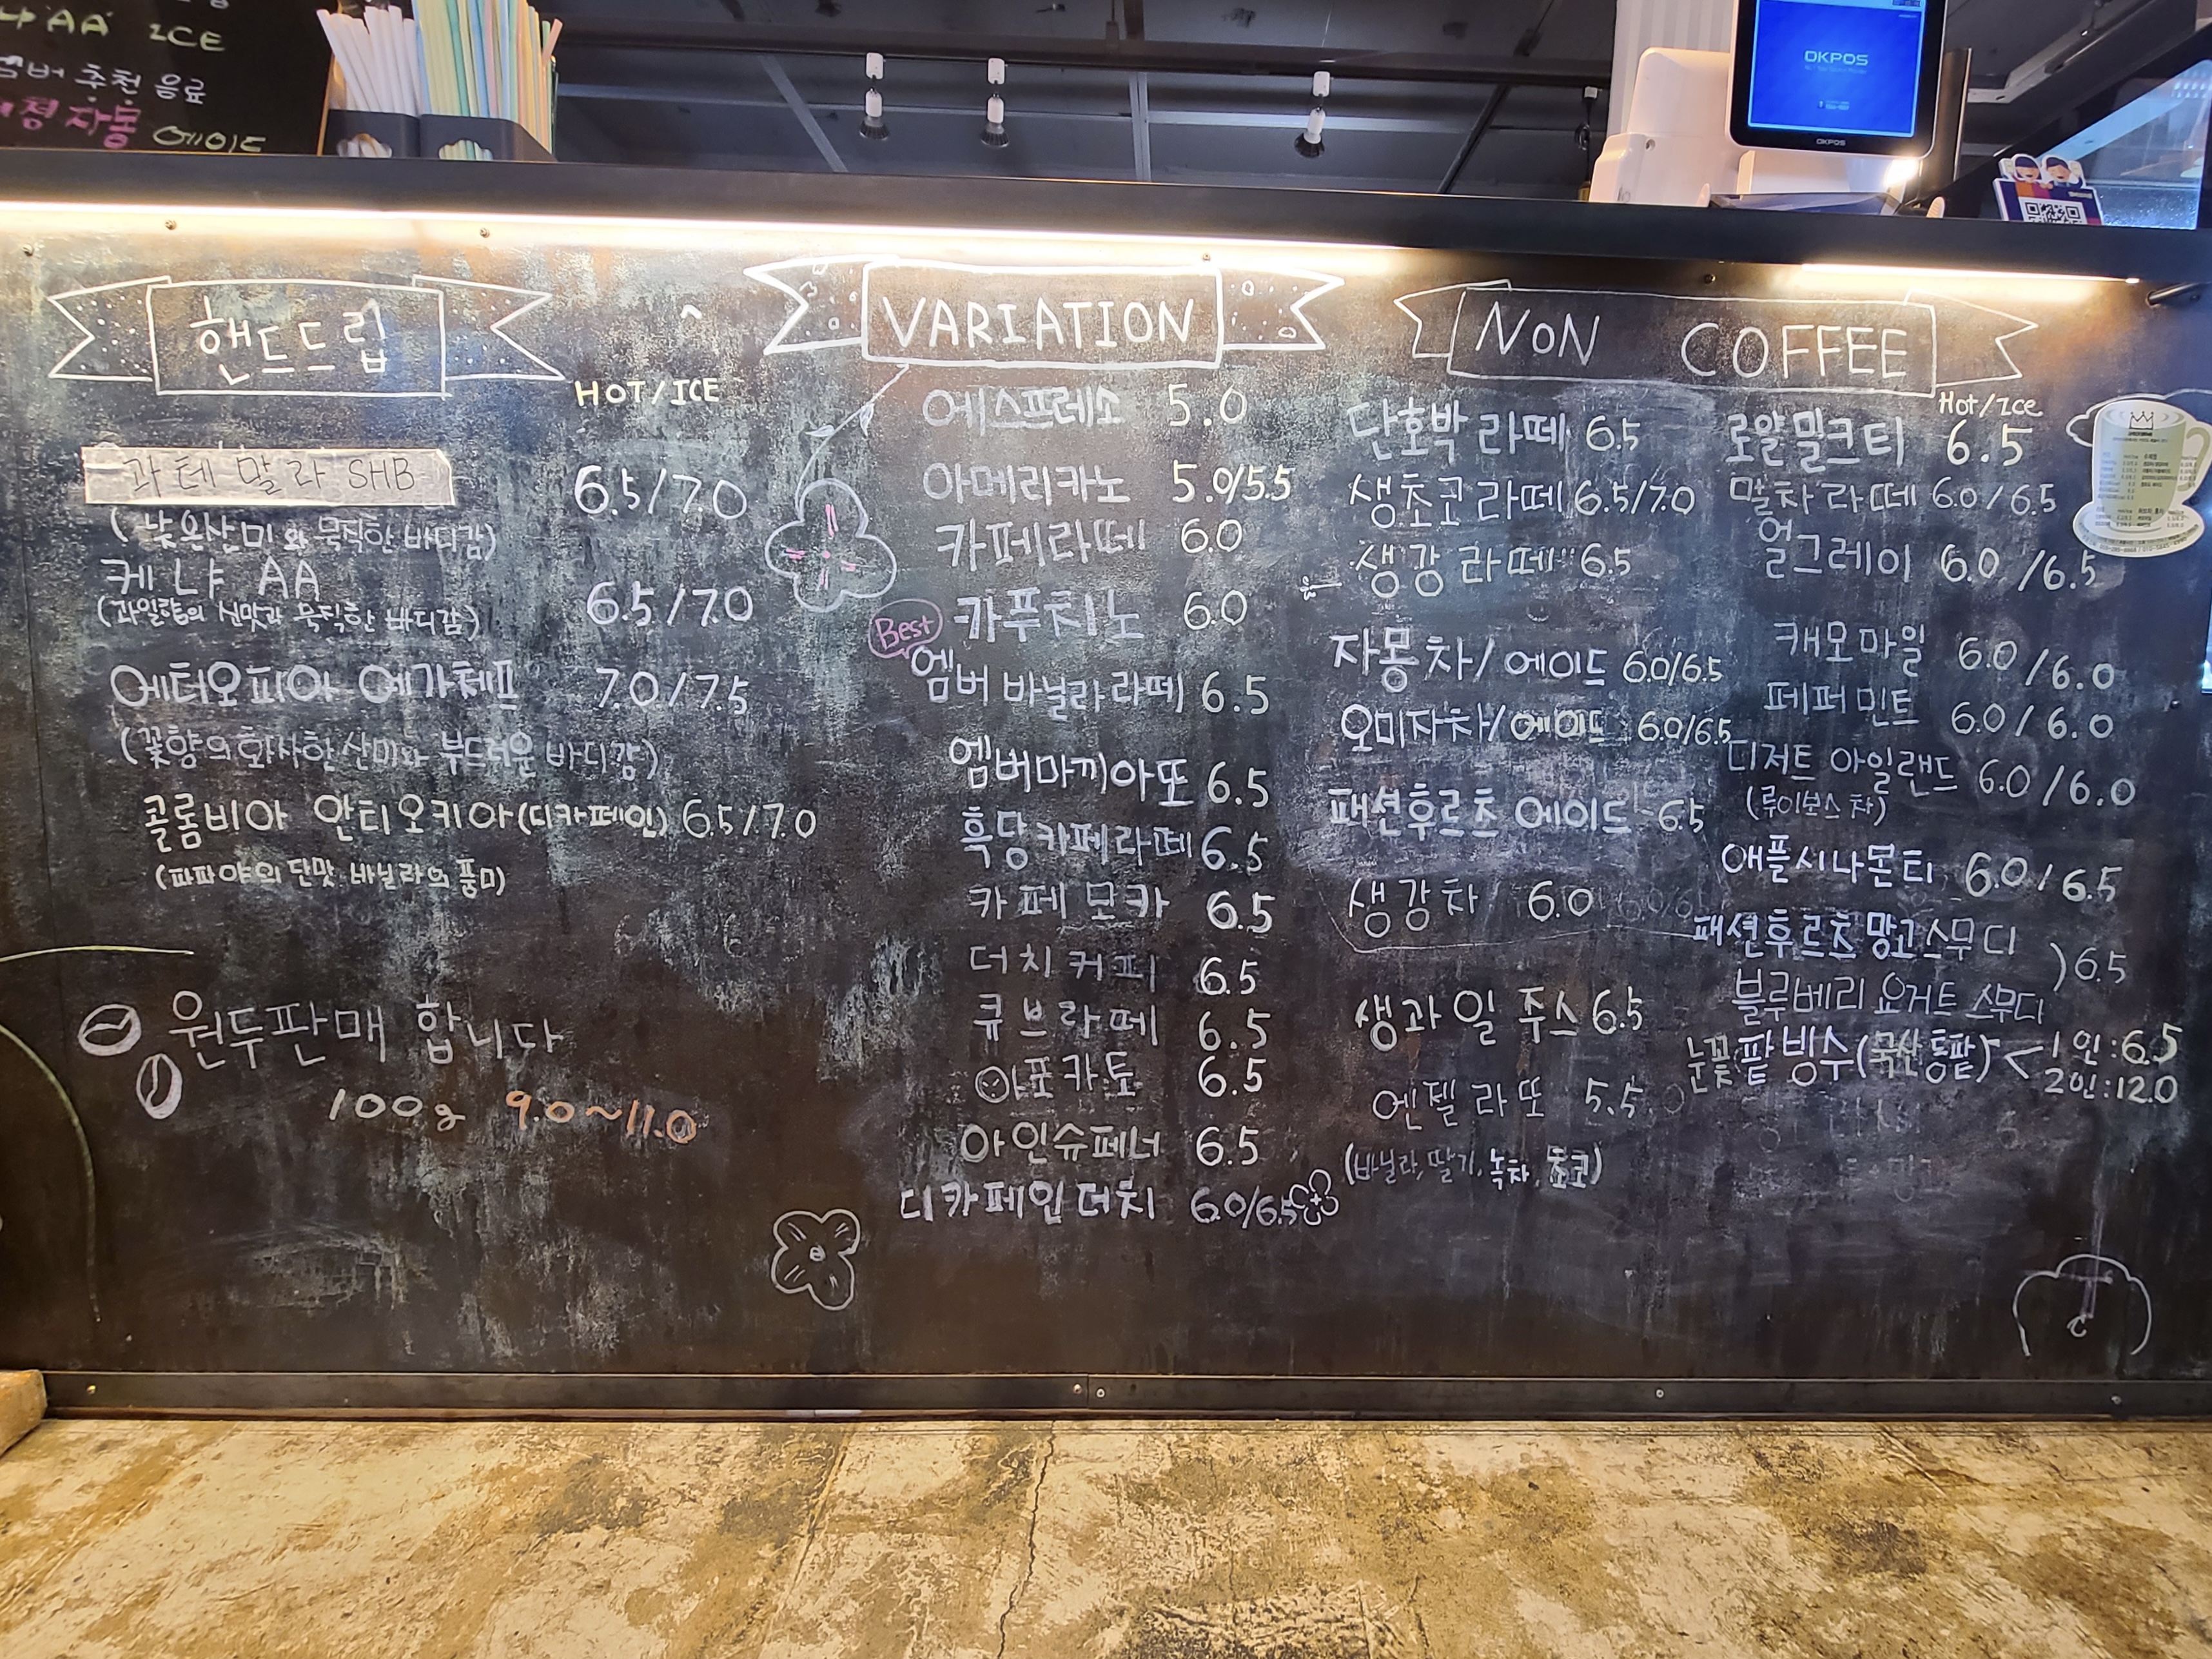 AA ICE
추천 음료
자몽 에이드
OKPOS
OKPOS
핸드드립
HOT/ICE
과테말라 SHB 6.5/7.0
(낮은산미와 묵직한 바디감)
케냐 AA 6.5/7.0
(과일향의 신맛과 묵직한 바디감)
에티오피아 예가체프 7.0/7.5
(꽃향의 화사한 산미와 부드러운 바디감)
콜롬비아 안티오키아(디카페인) 6.5/7.0
(파파야의 단맛 바닐라의 풍미)
원두판매 합니다
100g 9.0~11.0
VARIATION
에스프레소 5.0
아메리카노 5.0/5.5
카페라떼 6.0
카푸치노 6.0
Best
엠버 바닐라라떼 6.5
엠버마끼아또 6.5
흑당카페라떼 6.5
카페모카 6.5
더치커피 6.5
큐브라떼 6.5
아포카토 6.5
아인슈페너 6.5
디카페인더치 6.0/6.5
NoN COFFEE
단호박 라떼 6.5
생초코라떼 6.5/7.0
생강 라떼 6.5
자몽차/에이드 6.0/6.5
오미자차/에이드 6.0/6.5
패션후르츠 에이드 6.5
생강차 6.0
생과일 쥬스 6.5
엔젤라또 5.5
(바닐라, 딸기, 녹차, 초코)
Hot/Ice
로얄밀크티 6.5
말차라떼 6.0/6.5
얼그레이 6.0/6.5
캐모마일 6.0/6.0
페퍼민트 6.0/6.0
디저트 아일랜드 6.0/6.0
(루이보스차)
애플시나몬티 6.0/6.5
패션후르츠 망고스무디
블루베리 요거트 스무디 ) 6.5
눈꽃팥빙수(국산통팥) < 1인:6.5
2인:12.0